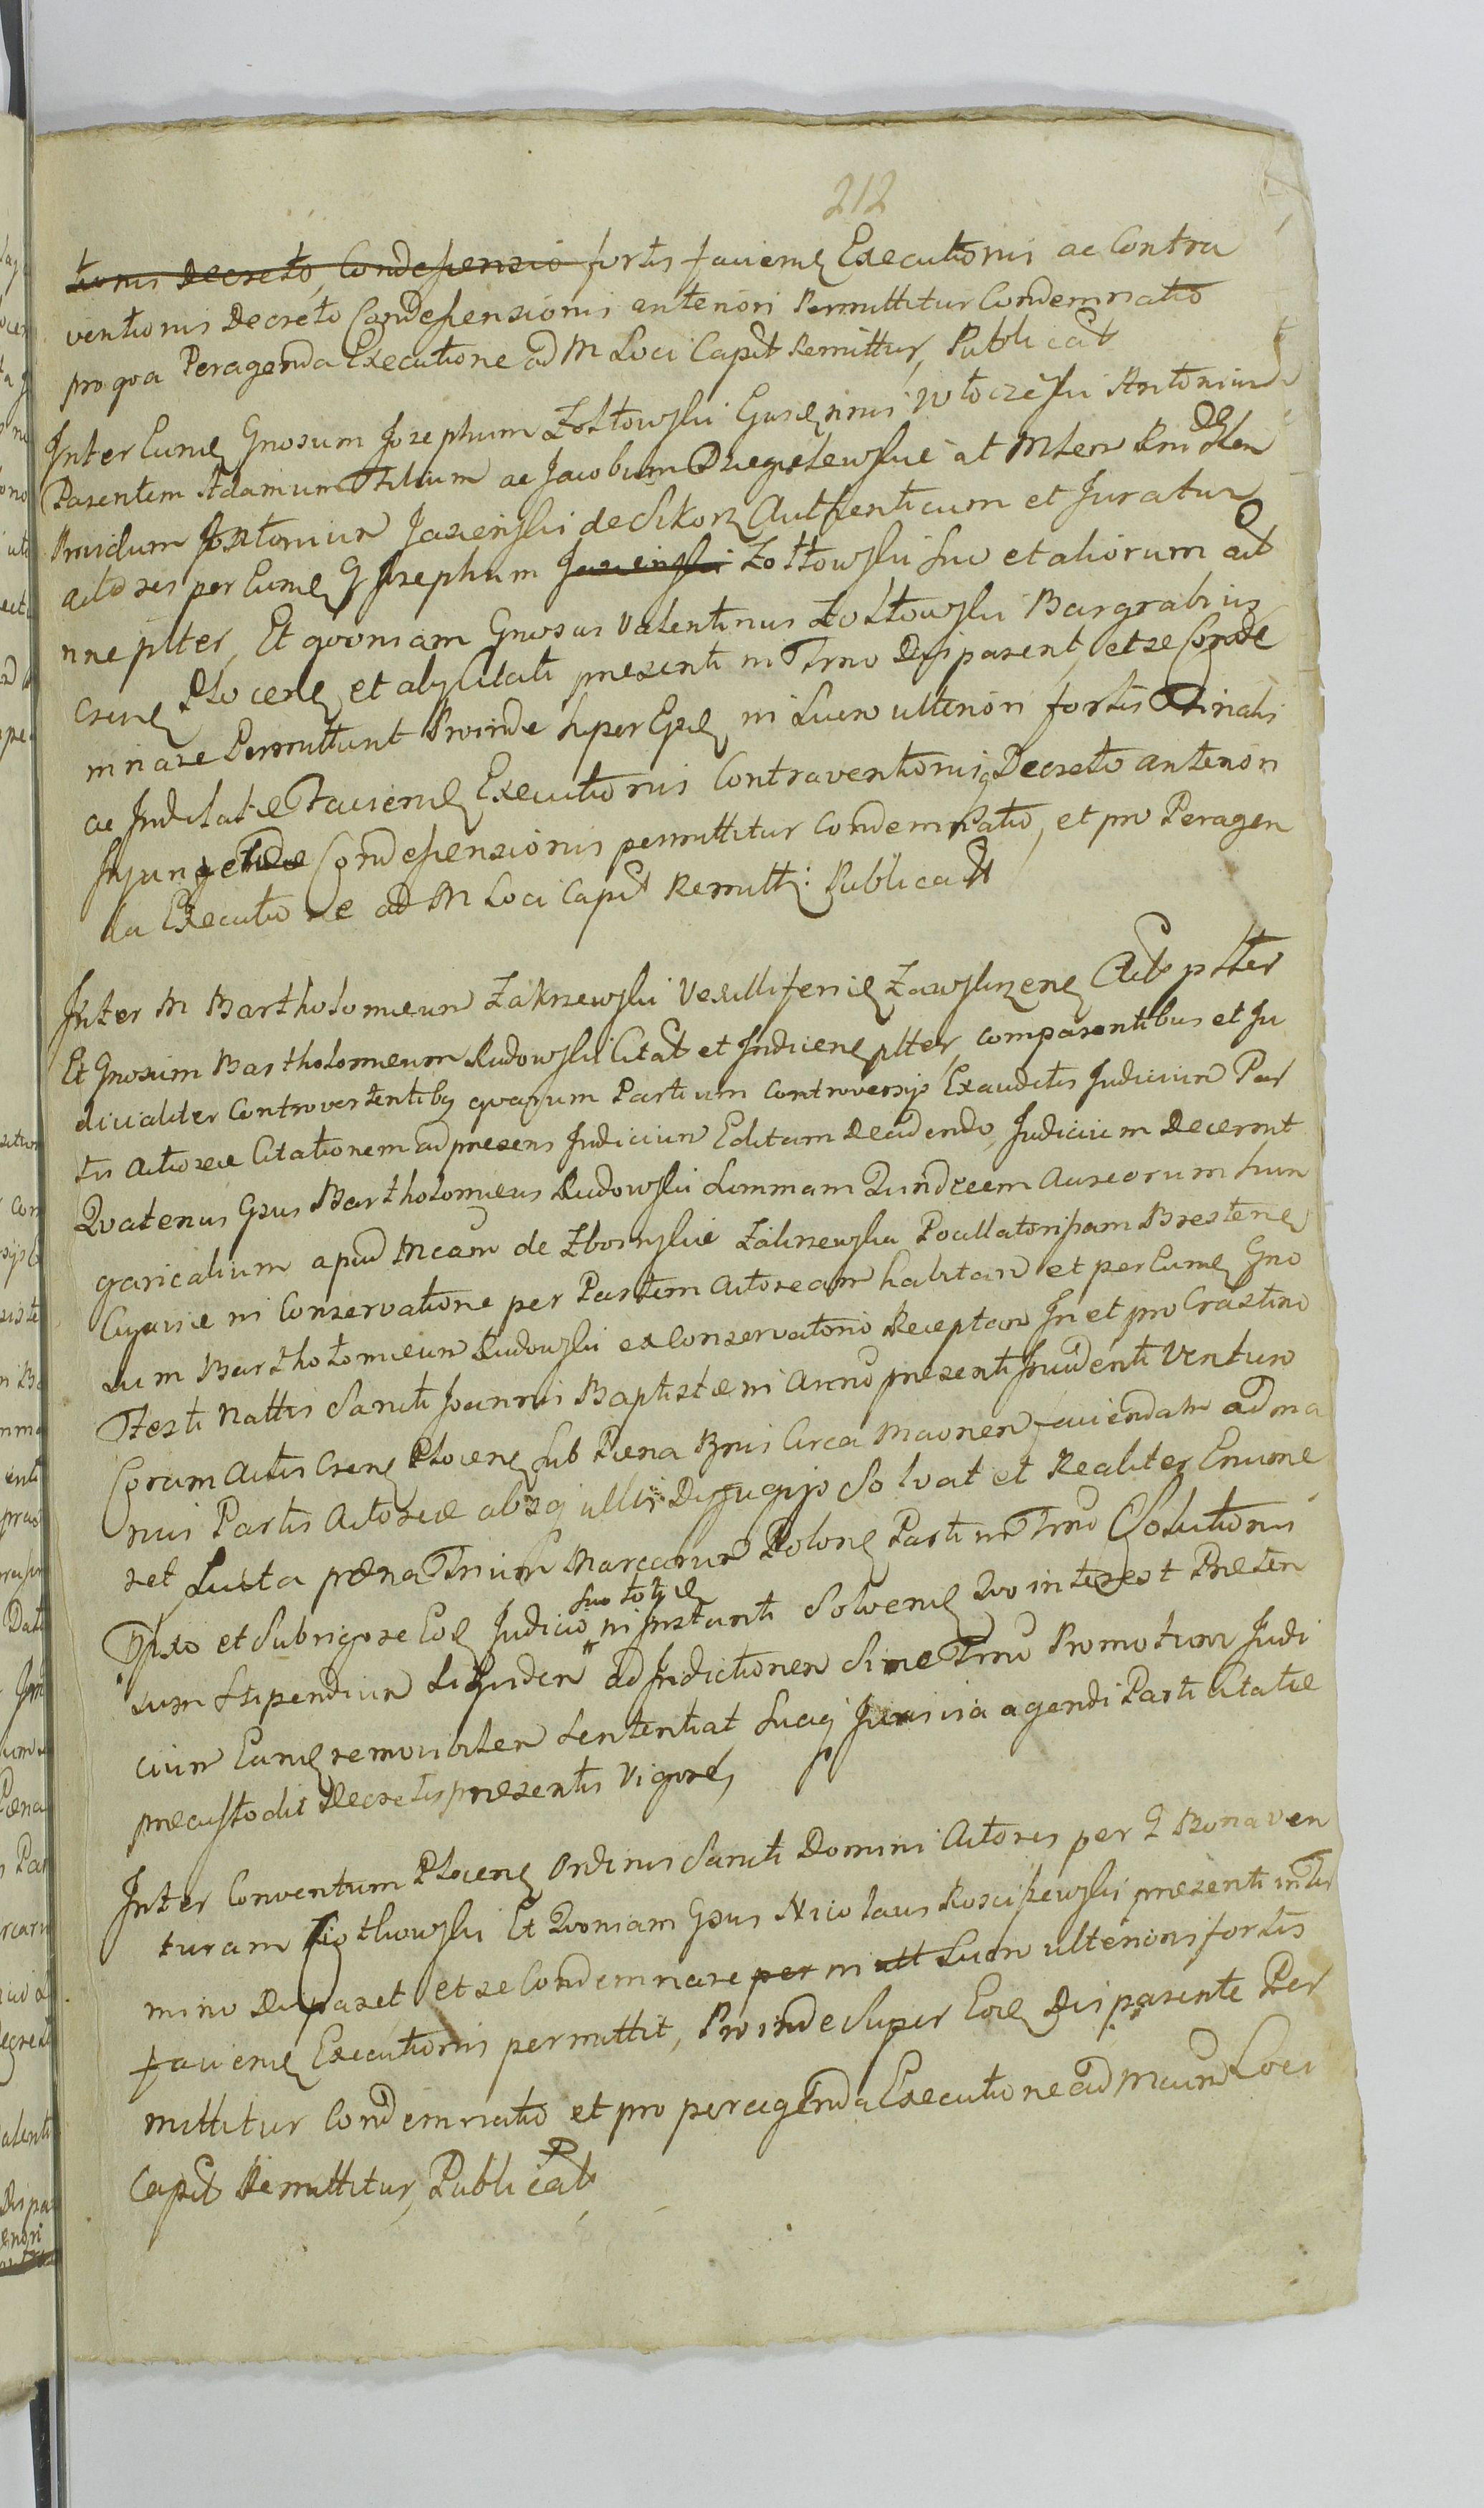 212
tionis Decreto, Condescensio fortis faciend Executionis ac Contra
ventionis Decreto Condescensionis anteriori Permittitur Condemnatio
pro qva Peragenda Executione ad M Loci Capit Remittitur, Publicat
Inter Eund Gnosum Josephum Zołtowski Antonium
Parentem Adamum Filium ac Jacobum at
Providum Antonium Jasienski de Sikorz Authenticum et Juratum
actores per Eund G Josephum Jasienski Zołtowski suo et aliorum act
nne pltter, Et qvoniam Gnosus Valentinus Zołtowski Burgrabius
Crens Plocens et aly Citati presenti in Trno Disparent, et se Conde
mnare Permittunt Proinde super Eosd in Lucro ulteriori fortis Trinalis
ac Judicatae Faciend Executionis Contraventionis Decreto anteriori
Condescensionis permittitur Condemnatio, et pro Peragen
da Executione ad M Loci Capit Remitti: Publicatt
Inter M Bartholomeum Zakrzewski Vexilliferid Zawskrzens Act pltter
Et Gnosum Bartholomeum Rudowski Citat et Indicens pltter, comparentibus et Ju
dicialiter Controvertentibq qvarum Partium Controversys Exauditis Judicium Par
tis Actoreae Citationem ad presens Judicium Editam Decidendo, Judicium Decernit
Qvatenus Gsus Bartholomeus Rudowski Summam Qvindecem Aureorum hun
garicalium apud Mcam de Zboinskie Zakrzewska Pocillatorissam Brestens
Cujaviae in Conservatione per Partem Actoream habitam et per Eund Gno
sum Bartholomeum Rudowski ex Conservatorio Receptam In et pro Crastino
Festi Nattis Sancti Joannis Baptistae in Anno presenti Incidenti Venturo
Coram Actis Crens Plocens Sub Paena Bnnis Circa Maonem faciendam ad ma
nus Partis Actoreae absq ullis Dyfugijs Solvat et Realiter Enume
ret Luita paena Trium Marcarum Polond Parti in Trno Solutionis
fixo et Sub rigore Eod Judicio in Instanti Solvend Qvo interest Preten
sum Stipendium ad Indictionem Sine Trno Promotum Judi
cium Eund removibilem Sententiat, Suaq Jura via agendi Parti Citatae
precustodit Decretis presentis Vigore,
Inter Conventum Plocens Ordinis Sancti Domini Actores per G Bonaven
turam Et Qvoniam Gsus Nicolaus Rosciszewski presenti in Ter
mino Disparet et se Condemnare per in ult Lucro ulterioris fortis
faciend Executionis permittit, Proinde Super Eod Disparente Per
mittitur Condemnatio et pro peragenda Executione ad Mcum Loci
Capit Remittitur, Publicat,